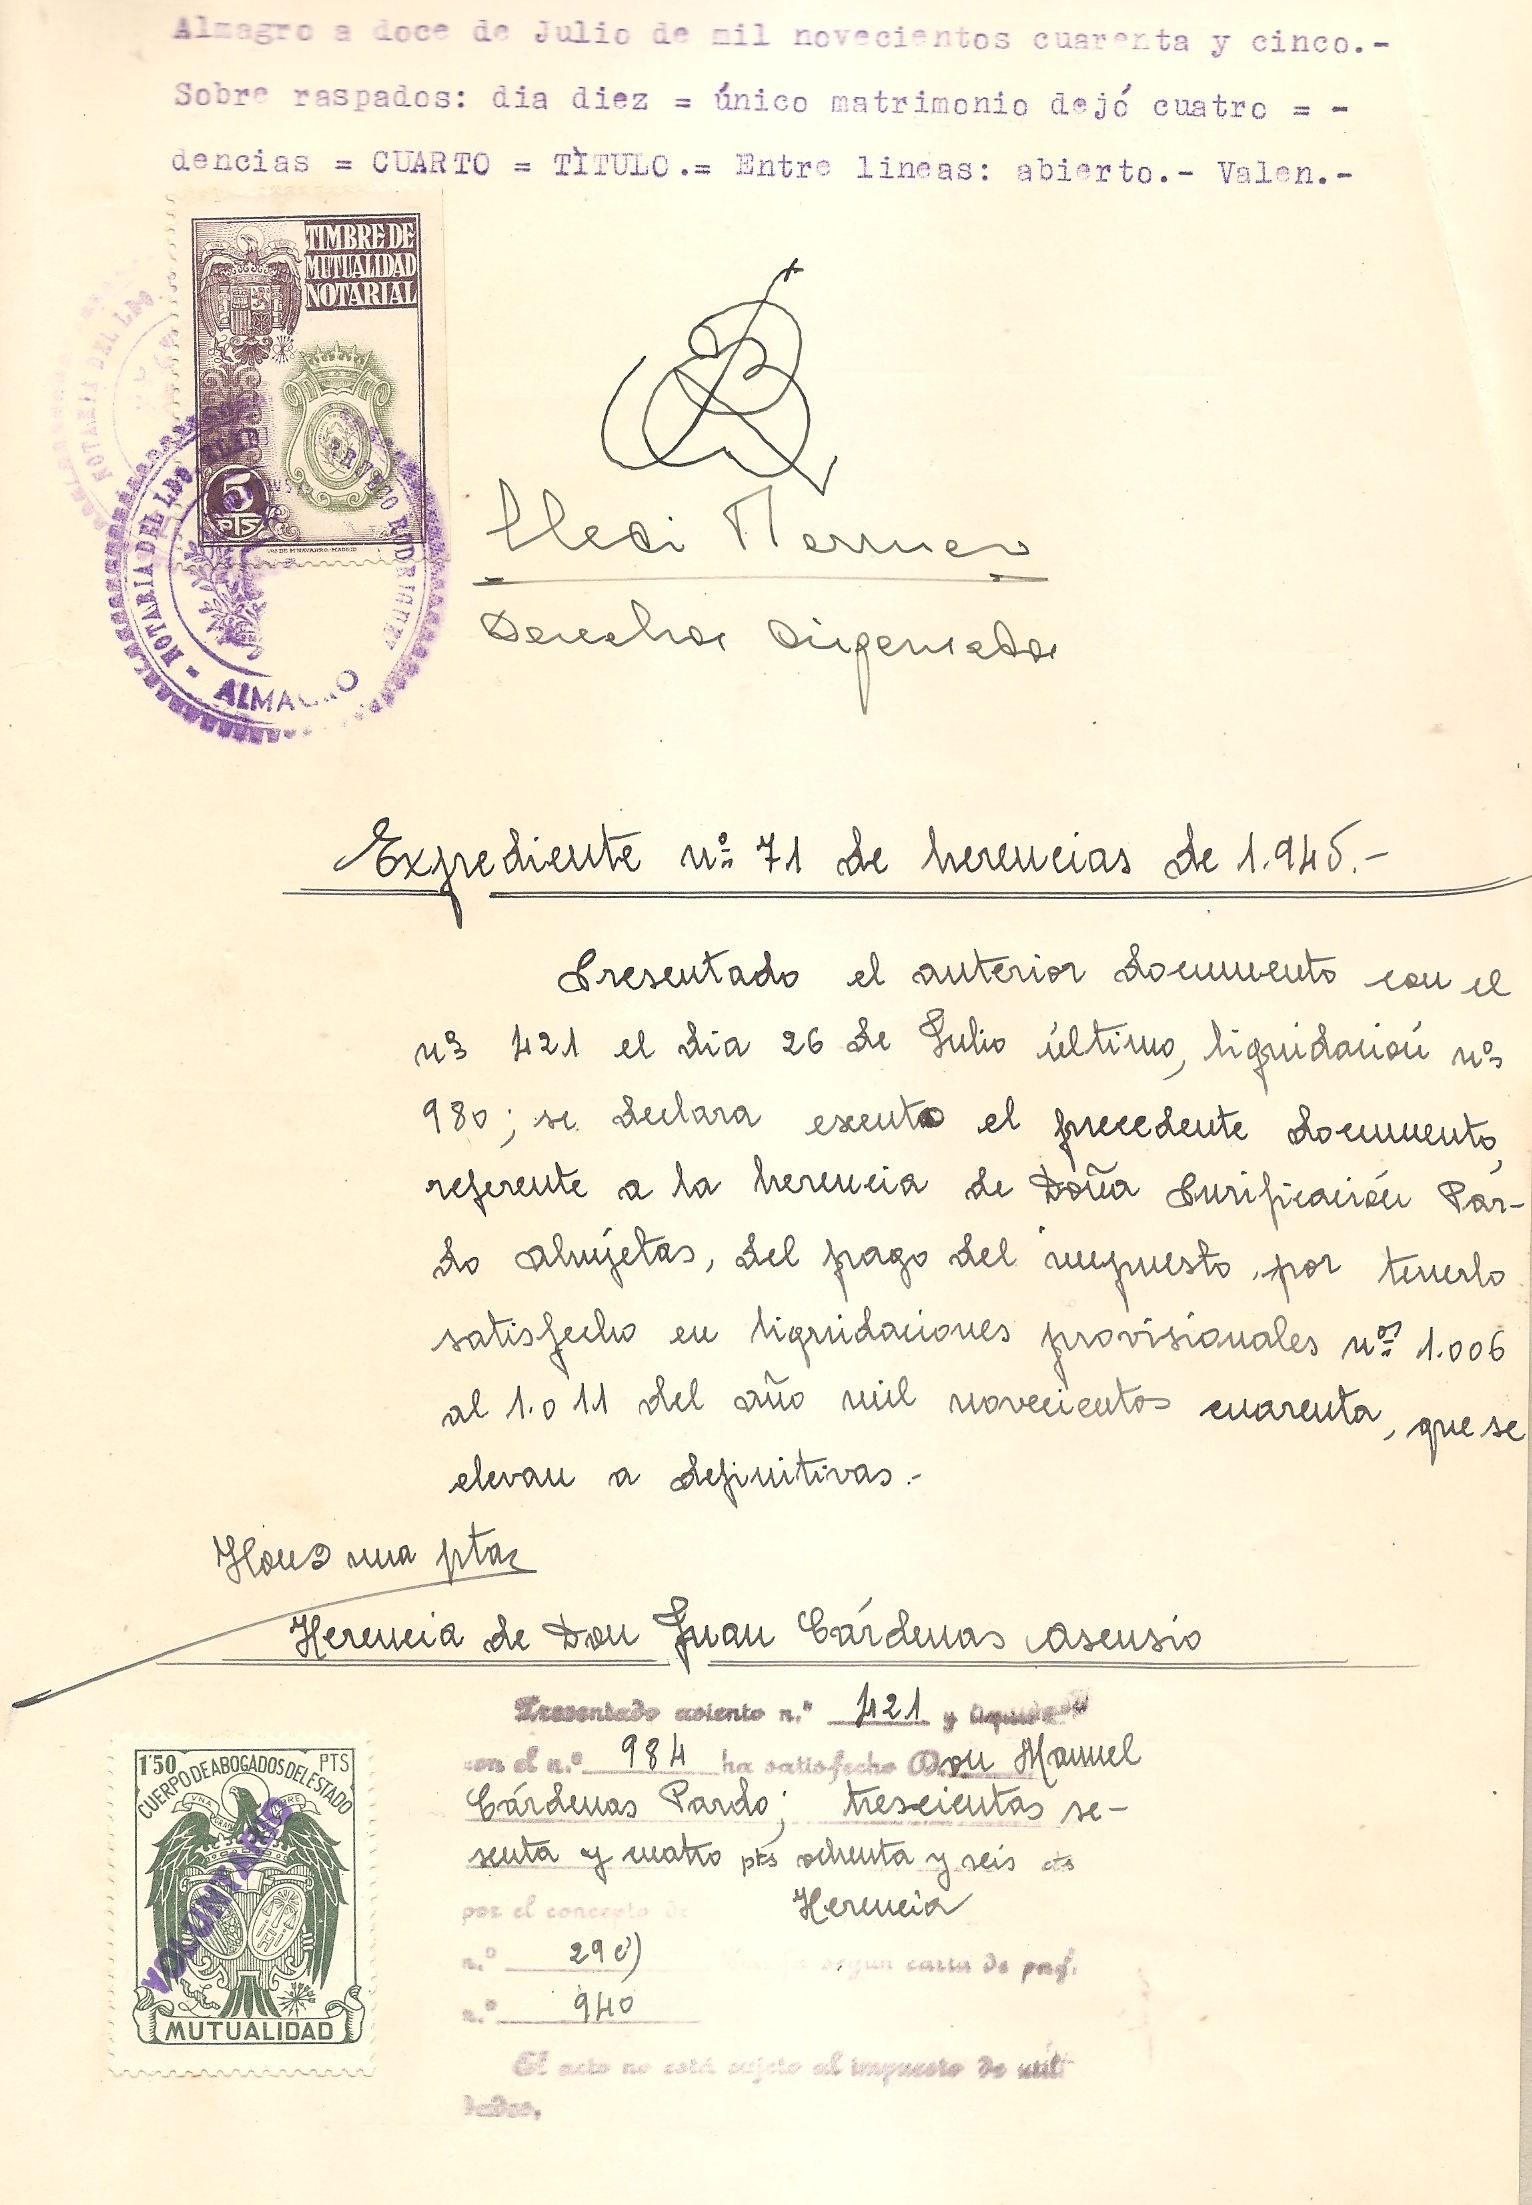 Almagro a doce de Julio de mil novecientos cuarenta y cinco.-
Sobre raspados: dia diez = único matrimonio dejó cuatro = -
dencias = CUARTO = TÌTULO.= Entre lineas: abierto.- Valen.-
TIMBRE DE
MUTUALIDAD
NOTARIAL
5
PTS
NOTARIA DEL LDO
ALMAGRO
Derechos
Expediente nº 71 de herencias de 1.945.-
Presentado el anterior documento con el
nº 421 el dia 26 de Julio último, liquidación nº
980; se declara exento el precedente documento,
referente a la herencia de Doña Purificación Par-
do Almíjetas, del pago del impuesto, por tenerlo
satisfecho en liquidaciones provisionales nºs 1.006
al 1.011 del año mil novecientos cuarenta, que se
elevan a definitivas.-
una ptas
Herencia de Don Juan Cárdenas Asensio
Presentado asiento n.º 421 y
con el n.º 984 ha satisfecho Don Manuel
Cárdenas Pardo; trescientas se-
senta y cuatro pts ochenta y seis cts
por el concepto de Herencia
n.º 29 según carta de pago
n.º 940
El acto no está sujeto al impuesto de utili
dades.
1'50 PTS
CUERPO DE ABOGADOS DEL ESTADO
VOLUNTARIO
MUTUALIDAD